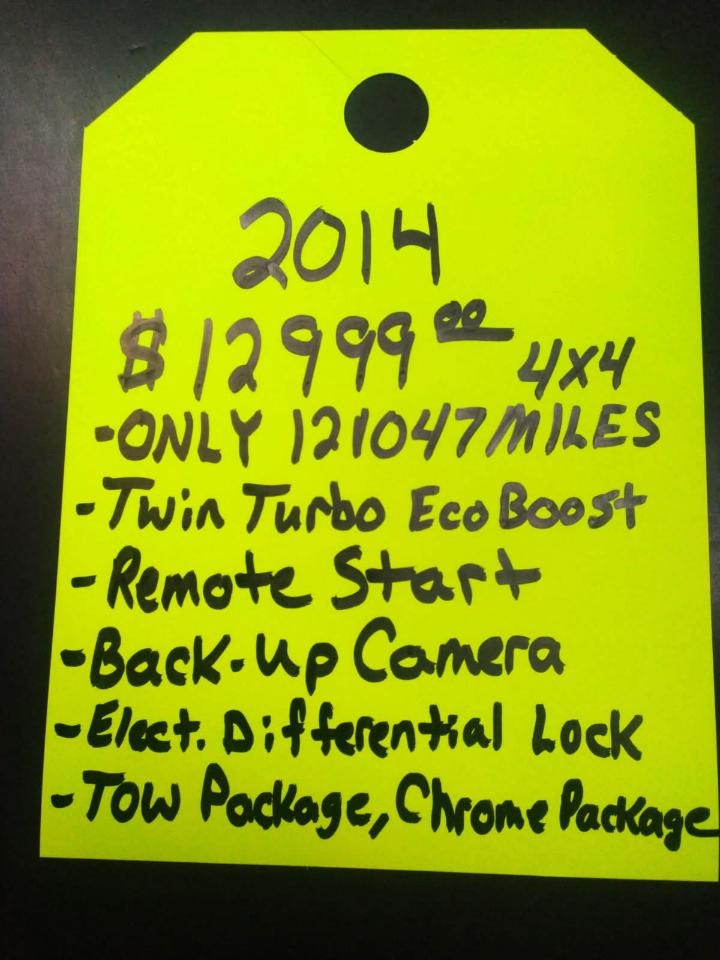 2014
$12999 00 4x4
-ONLY 121047 MILES
-Twin Turbo EcoBoost
-Remote Start
-Back-Up Camera
-Elect. Differential Lock
-Tow Package, Chrome Package